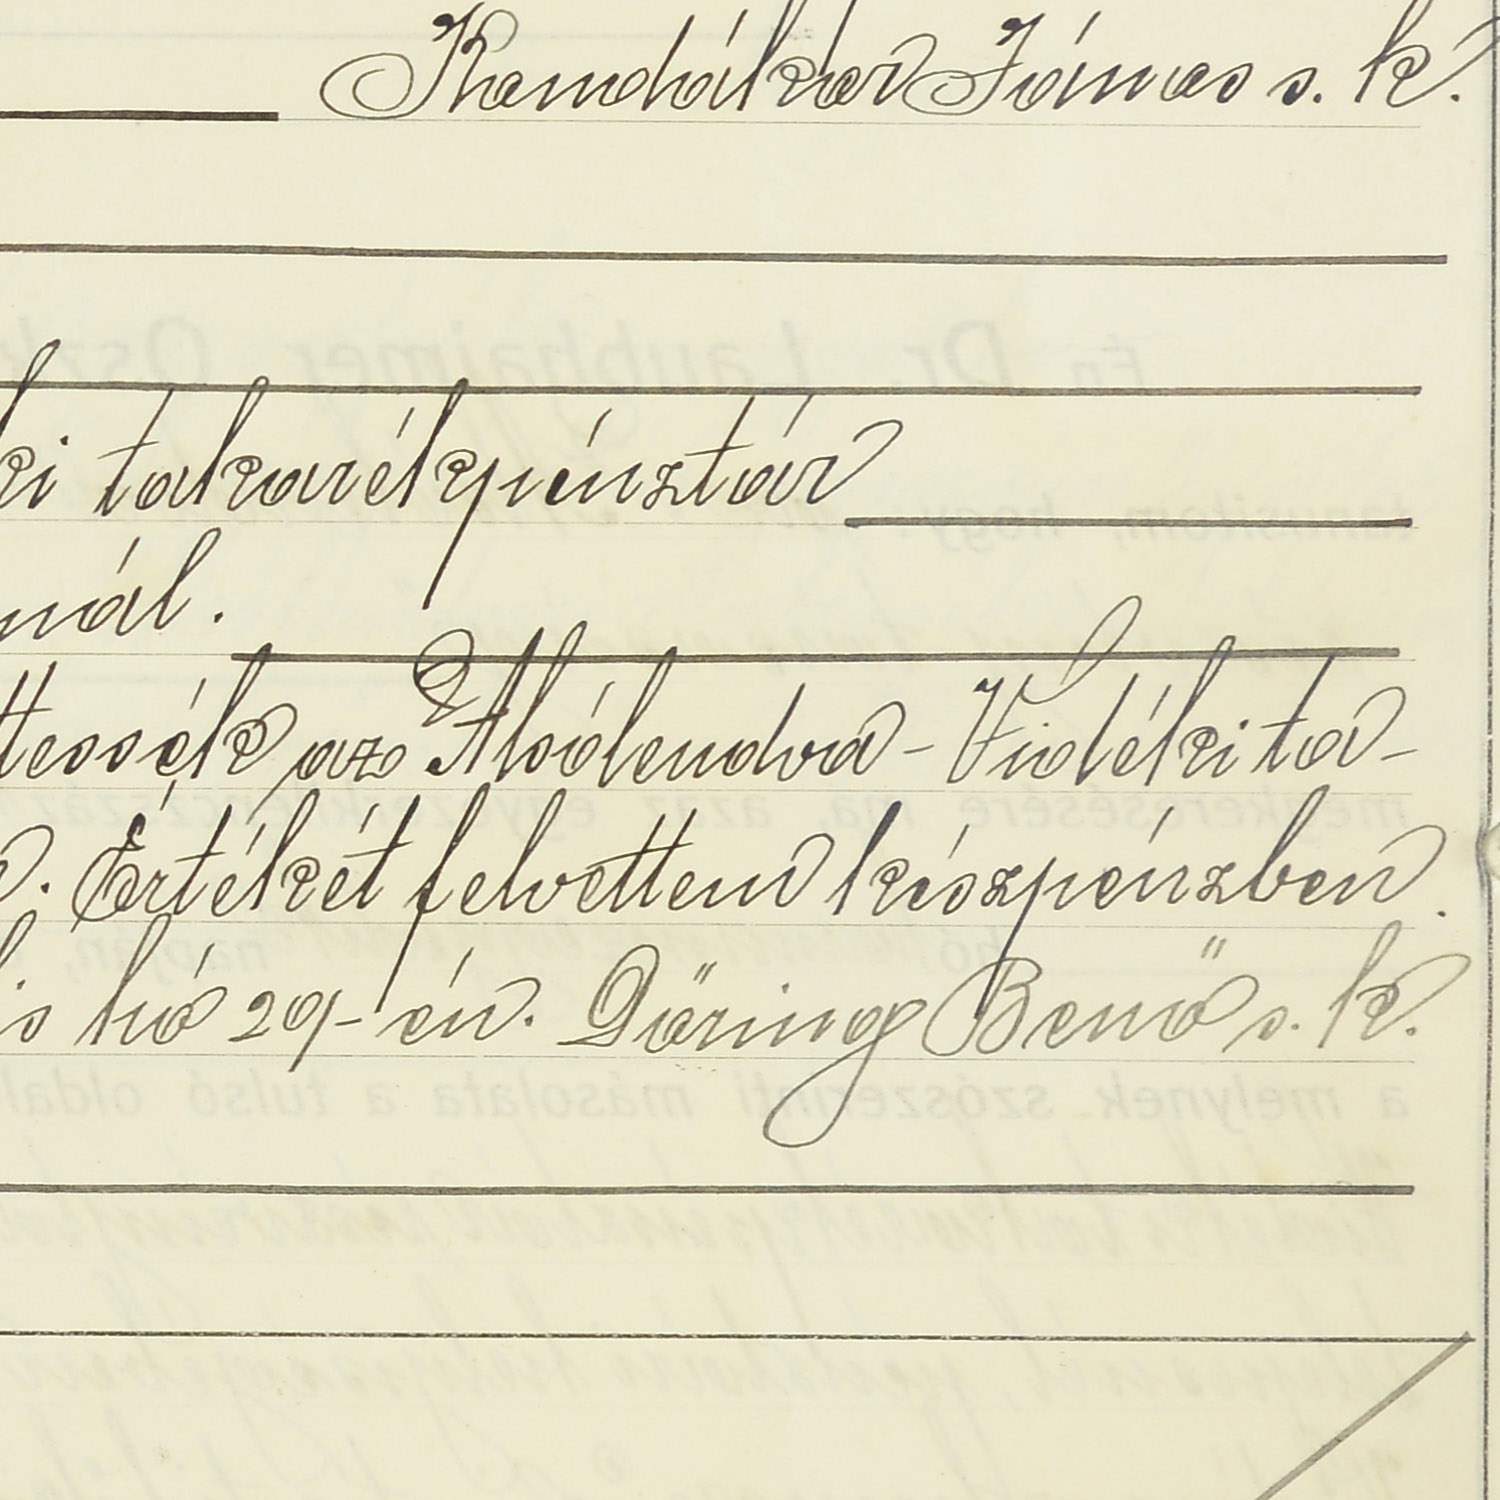 Kandikár János s. k.
ki takarékpénztár
nál.
ttessék az Alsólendva-Vidéki ta-
Értékét felvettem készpénzben.
is hó 29-én. Döring Benő s. k.